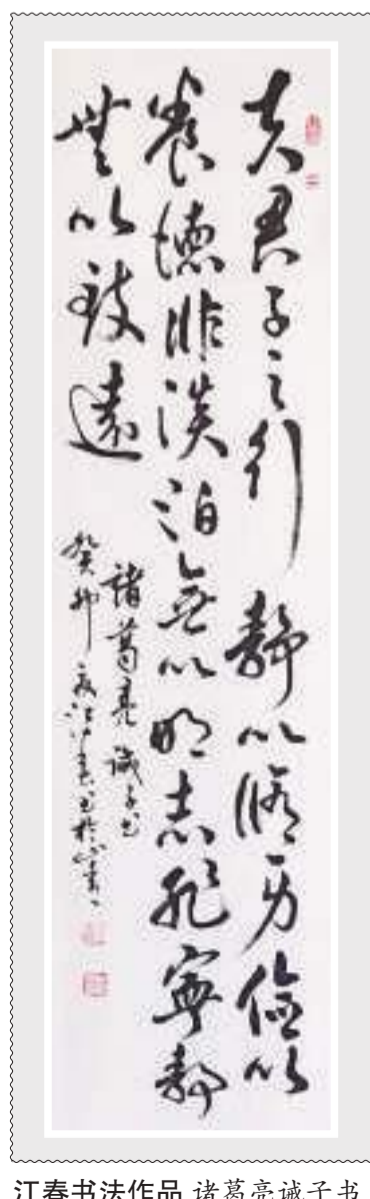 夫君子之行静以修身俭以
養德非淡泊無以明志非寧静
無以致遠
諸葛亮誡子书
癸卯 江春书於
江春书法作品 诸葛亮诫子书